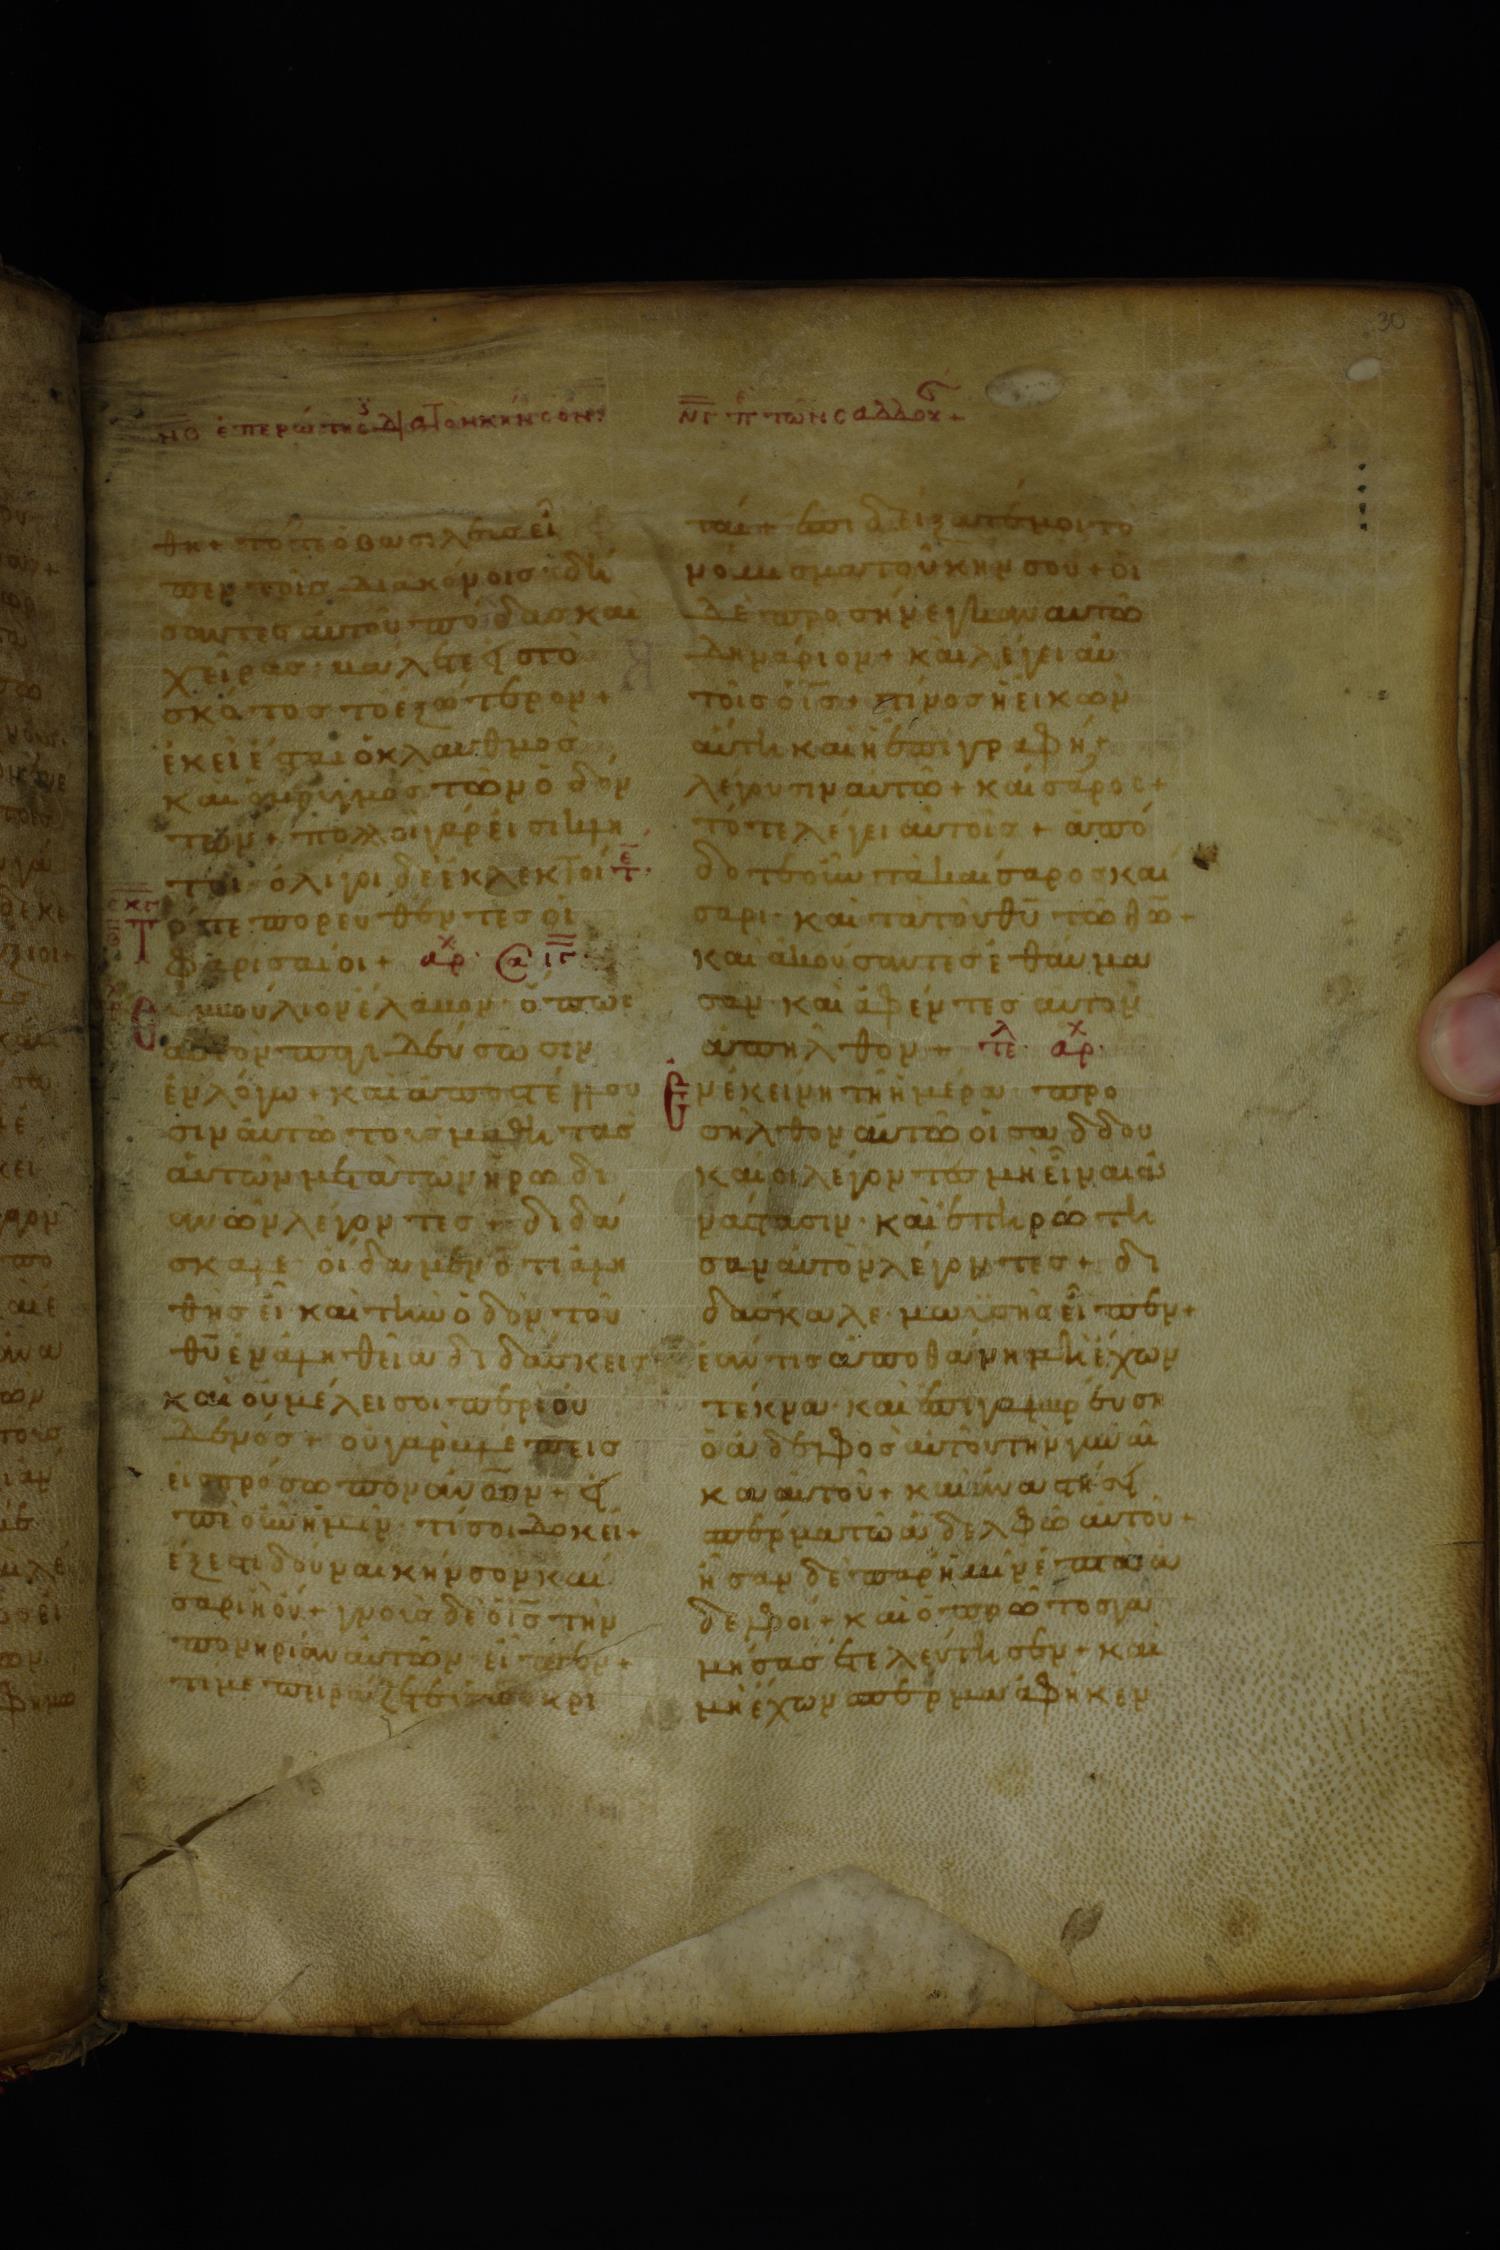 ἐπερώτησ διὰ τὸν κῆνσον
νγ π τῶν σαδδουκ +
θη + τότε ὁ βασιλεὺσ εἶ
πεν τοῖσ διακόνοισ · δή
σαντεσ αὐτοῦ πόδασ καὶ
χεῖρασ · βάλετε εἰσ τὸ
σκότοσ τὸ ἐξώτερον +
ἐκεῖ ἔσται ὁ κλαυθμὸσ
καὶ ὁ βρυγμὸσ τῶν ὀδόν
των + πολλοὶ γάρ εἰσι κλη
τοι · ὀλίγοι δὲ ἐκλεκτοί τε
Τότε πορευθέντεσ οἱ
φαρισαῖοι + αρχ
συμβούλιον ἔλαβον · ὅπωσ
αὐτὸν παγιδεύσωσιν
ἐν λόγω + καὶ ἀποστέλλου
σιν αὐτῶ τοὺσ μαθητὰσ
αὐτῶν μετὰ τῶν ἡρωδι
ανῶν λέγοντεσ + διδά
σκαλε · οἴδαμεν ὅτι ἀλη
θὴσ εἶ · καὶ τὴν ὁδὸν τοῦ
θυ ἐν ἀληθεία διδάσκεισ
καὶ οὐ μέλει σοι περὶ οὐ
δενόσ + οὐ γὰρ βλέπεισ
εἰσ πρόσωπον ανων + εἰ
πὲ οὖν ἡμῖν · τί σοι δοκεῖ +
ἔξεστι δοῦναι κῆνσον και
σαρι ἢ οὔ + γνοὺσ δὲ ὁ ισ τὴν
πονηρίαν αὐτῶν εἶπεν +
τί με πειράζετε ὑποκρι
ταί + ἐπιδείξατέ μοι τὸ
νόμισμα τοῦ κήνσου + οἱ
δὲ προσήνεγκαν αὐτῶ
δηνάριον + καὶ λέγει αὐ
τοῖσ ὁ ισ + τίνοσ ἡ εἰκὼν
αὕτη καὶ ἡ ἐπιγραφή ;
λέγουσιν αὐτῶ + καίσαροσ +
τότε λέγει αὐτοῖσ + ἀπό
δοτε οὖν τὰ καίσαροσ και
σαρι · καὶ τὰ τοῦ θυ τῶ θω +
καὶ ἀκούσαντεσ ἐθαύμα
σαν · καὶ ἀφέντεσ αὐτὸν
ἀπῆλθον + τελ αρχ
Ἐν ἐκείνη τῆ ἡμέρα προ
σῆλθον αὐτῶ οἱ σαδδου
καῖοι λέγοντεσ μὴ εἶναι ἀ
νάστασιν · καὶ ἐπηρώτη
σαν αὐτὸν λέγοντεσ + δι
δάσκαλε · μωϋσῆσ εἶπεν +
ἐάν τισ ἀποθάνη μὴ ἔχων
τέκνα · καὶ ἐπιγαμβρεύση
ὁ ἀδελφὸσ αὐτοῦ τὴν γυναῖ
κα αὐτοῦ + καὶ ἀναστήσει
σπέρμα τῶ ἀδελφῶ αὐτοῦ +
ἦσαν δὲ παρ ἡμῖν ἑπτὰ ἀ
δελφοί + καὶ ὁ πρῶτοσ γα
μήσασ ἐτελεύτησεν + καὶ
μὴ ἔχων σπέρμα ἀφῆκεν
30